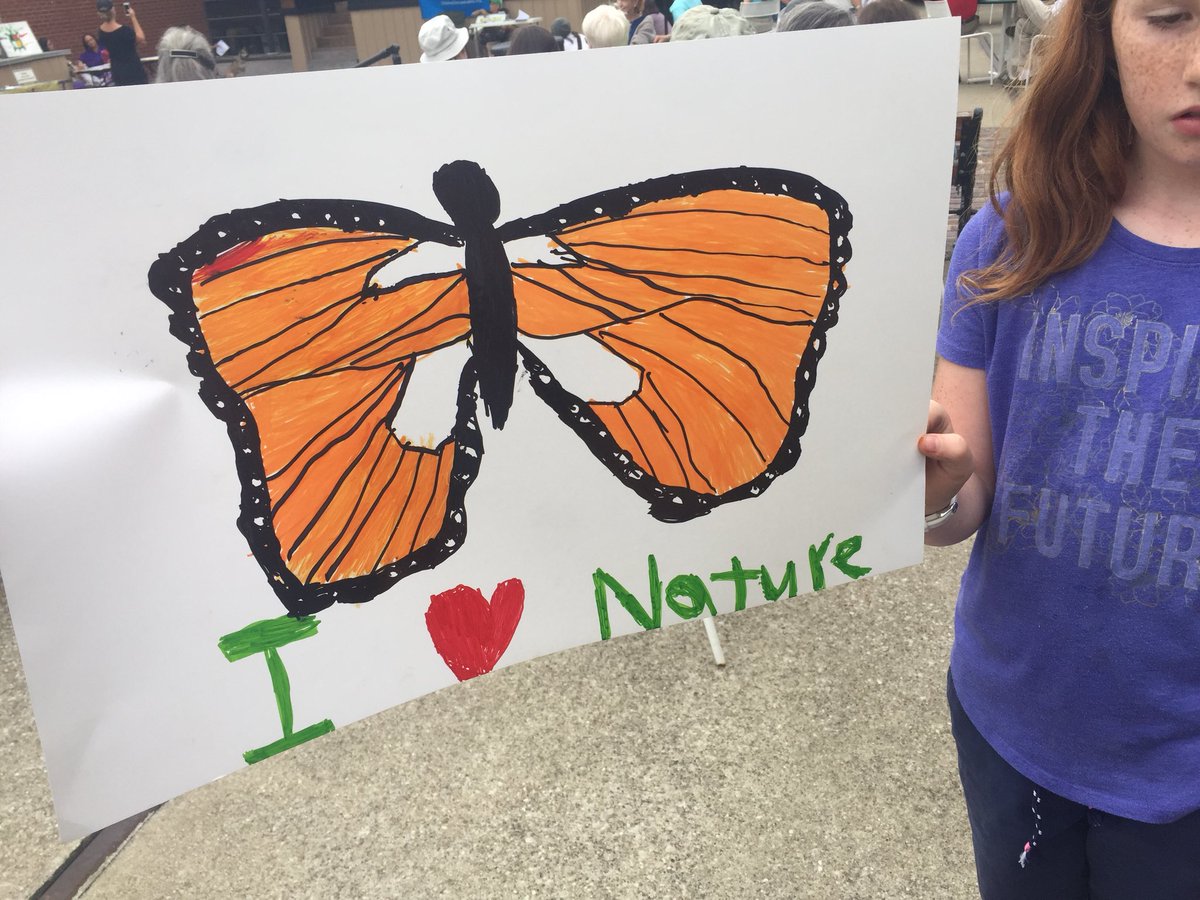 I ♥ Nature
INSPI
THE
FUTUR